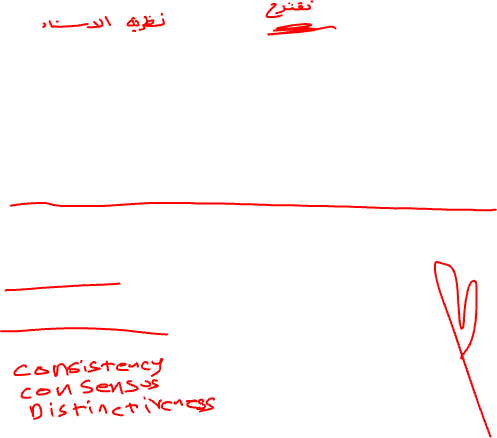 تقترح
نظرية الاسناد
Consistency
consensus
Distinctiveness